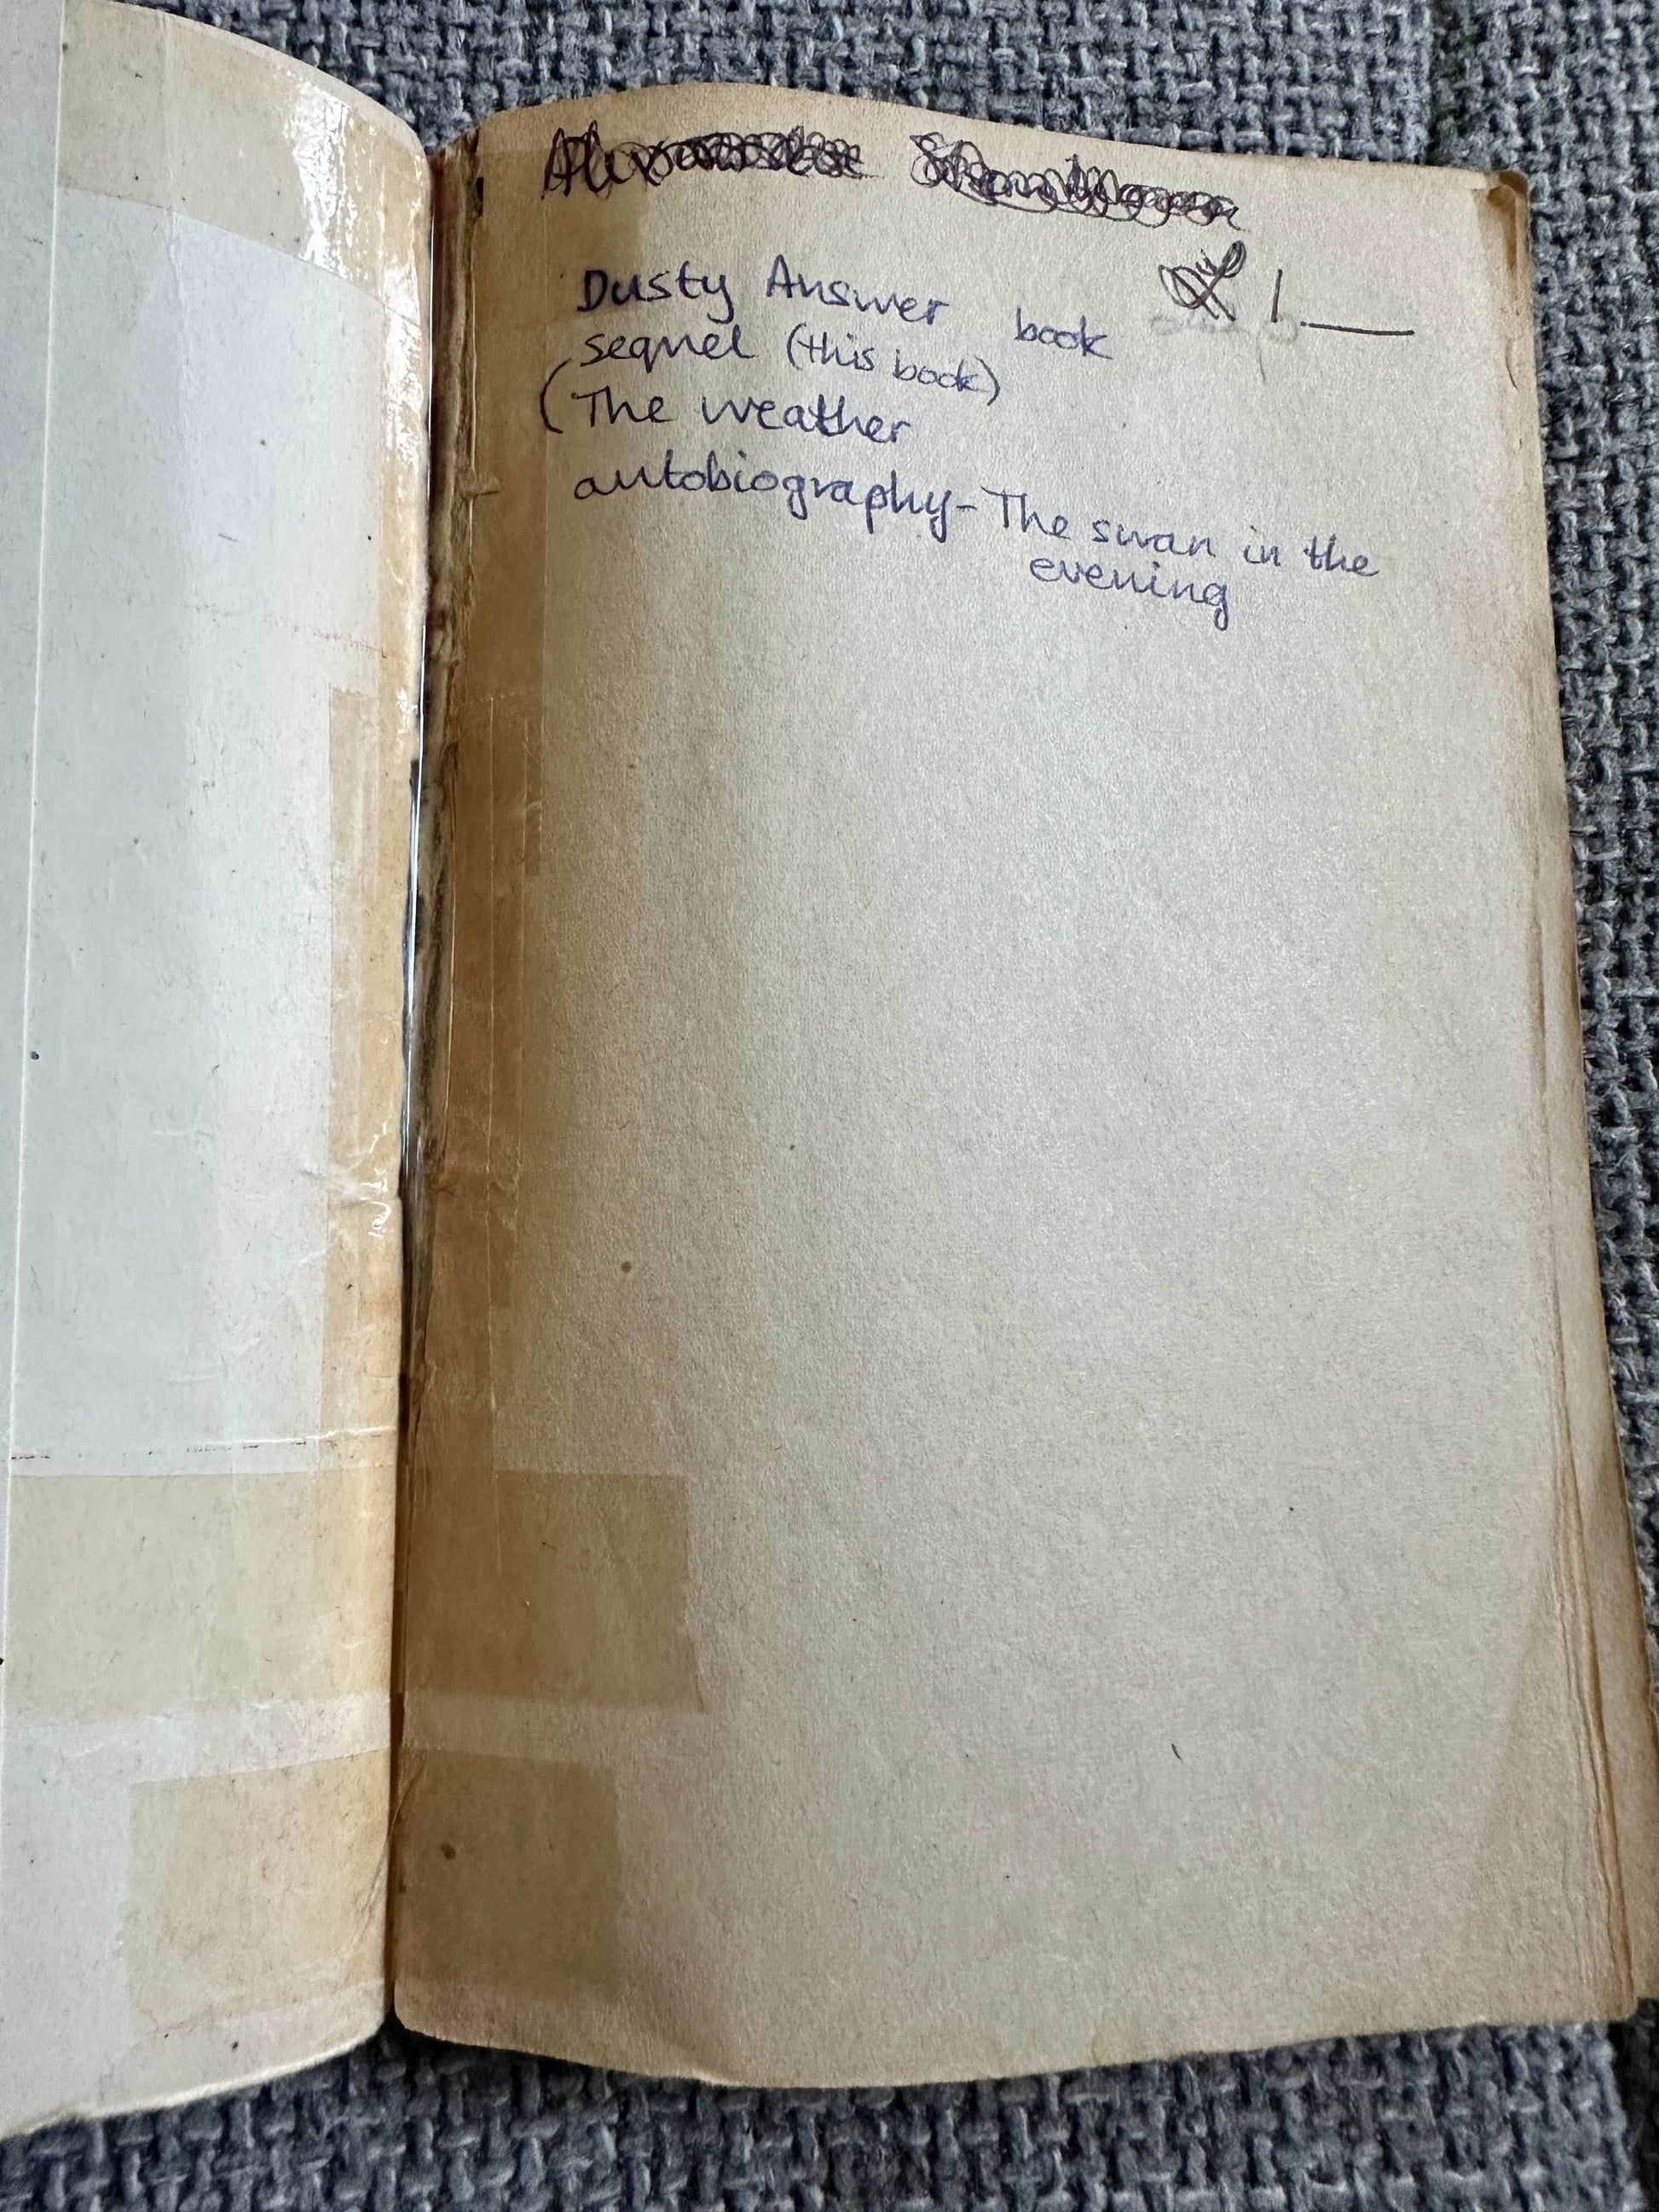 Dusty Answer book
sequel (this book)
(The weather
autobiography - The swan in the
evening
1.